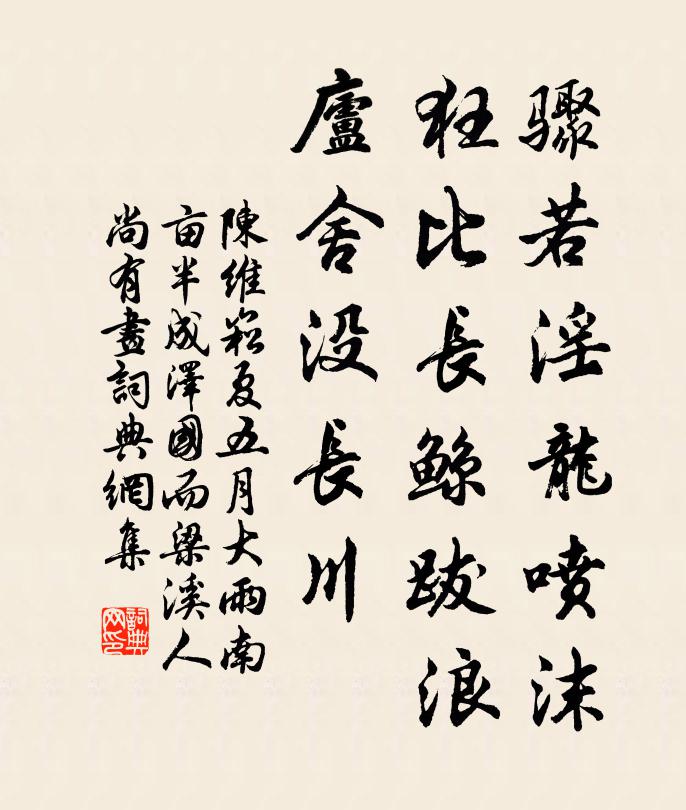 驟若淫龍噴沫
狂比長鯨跋浪
廬舍没長川
陳維崧夏五月大雨南
亩半成澤國而梁溪人
尚有畫詞典網集
詞典
网印